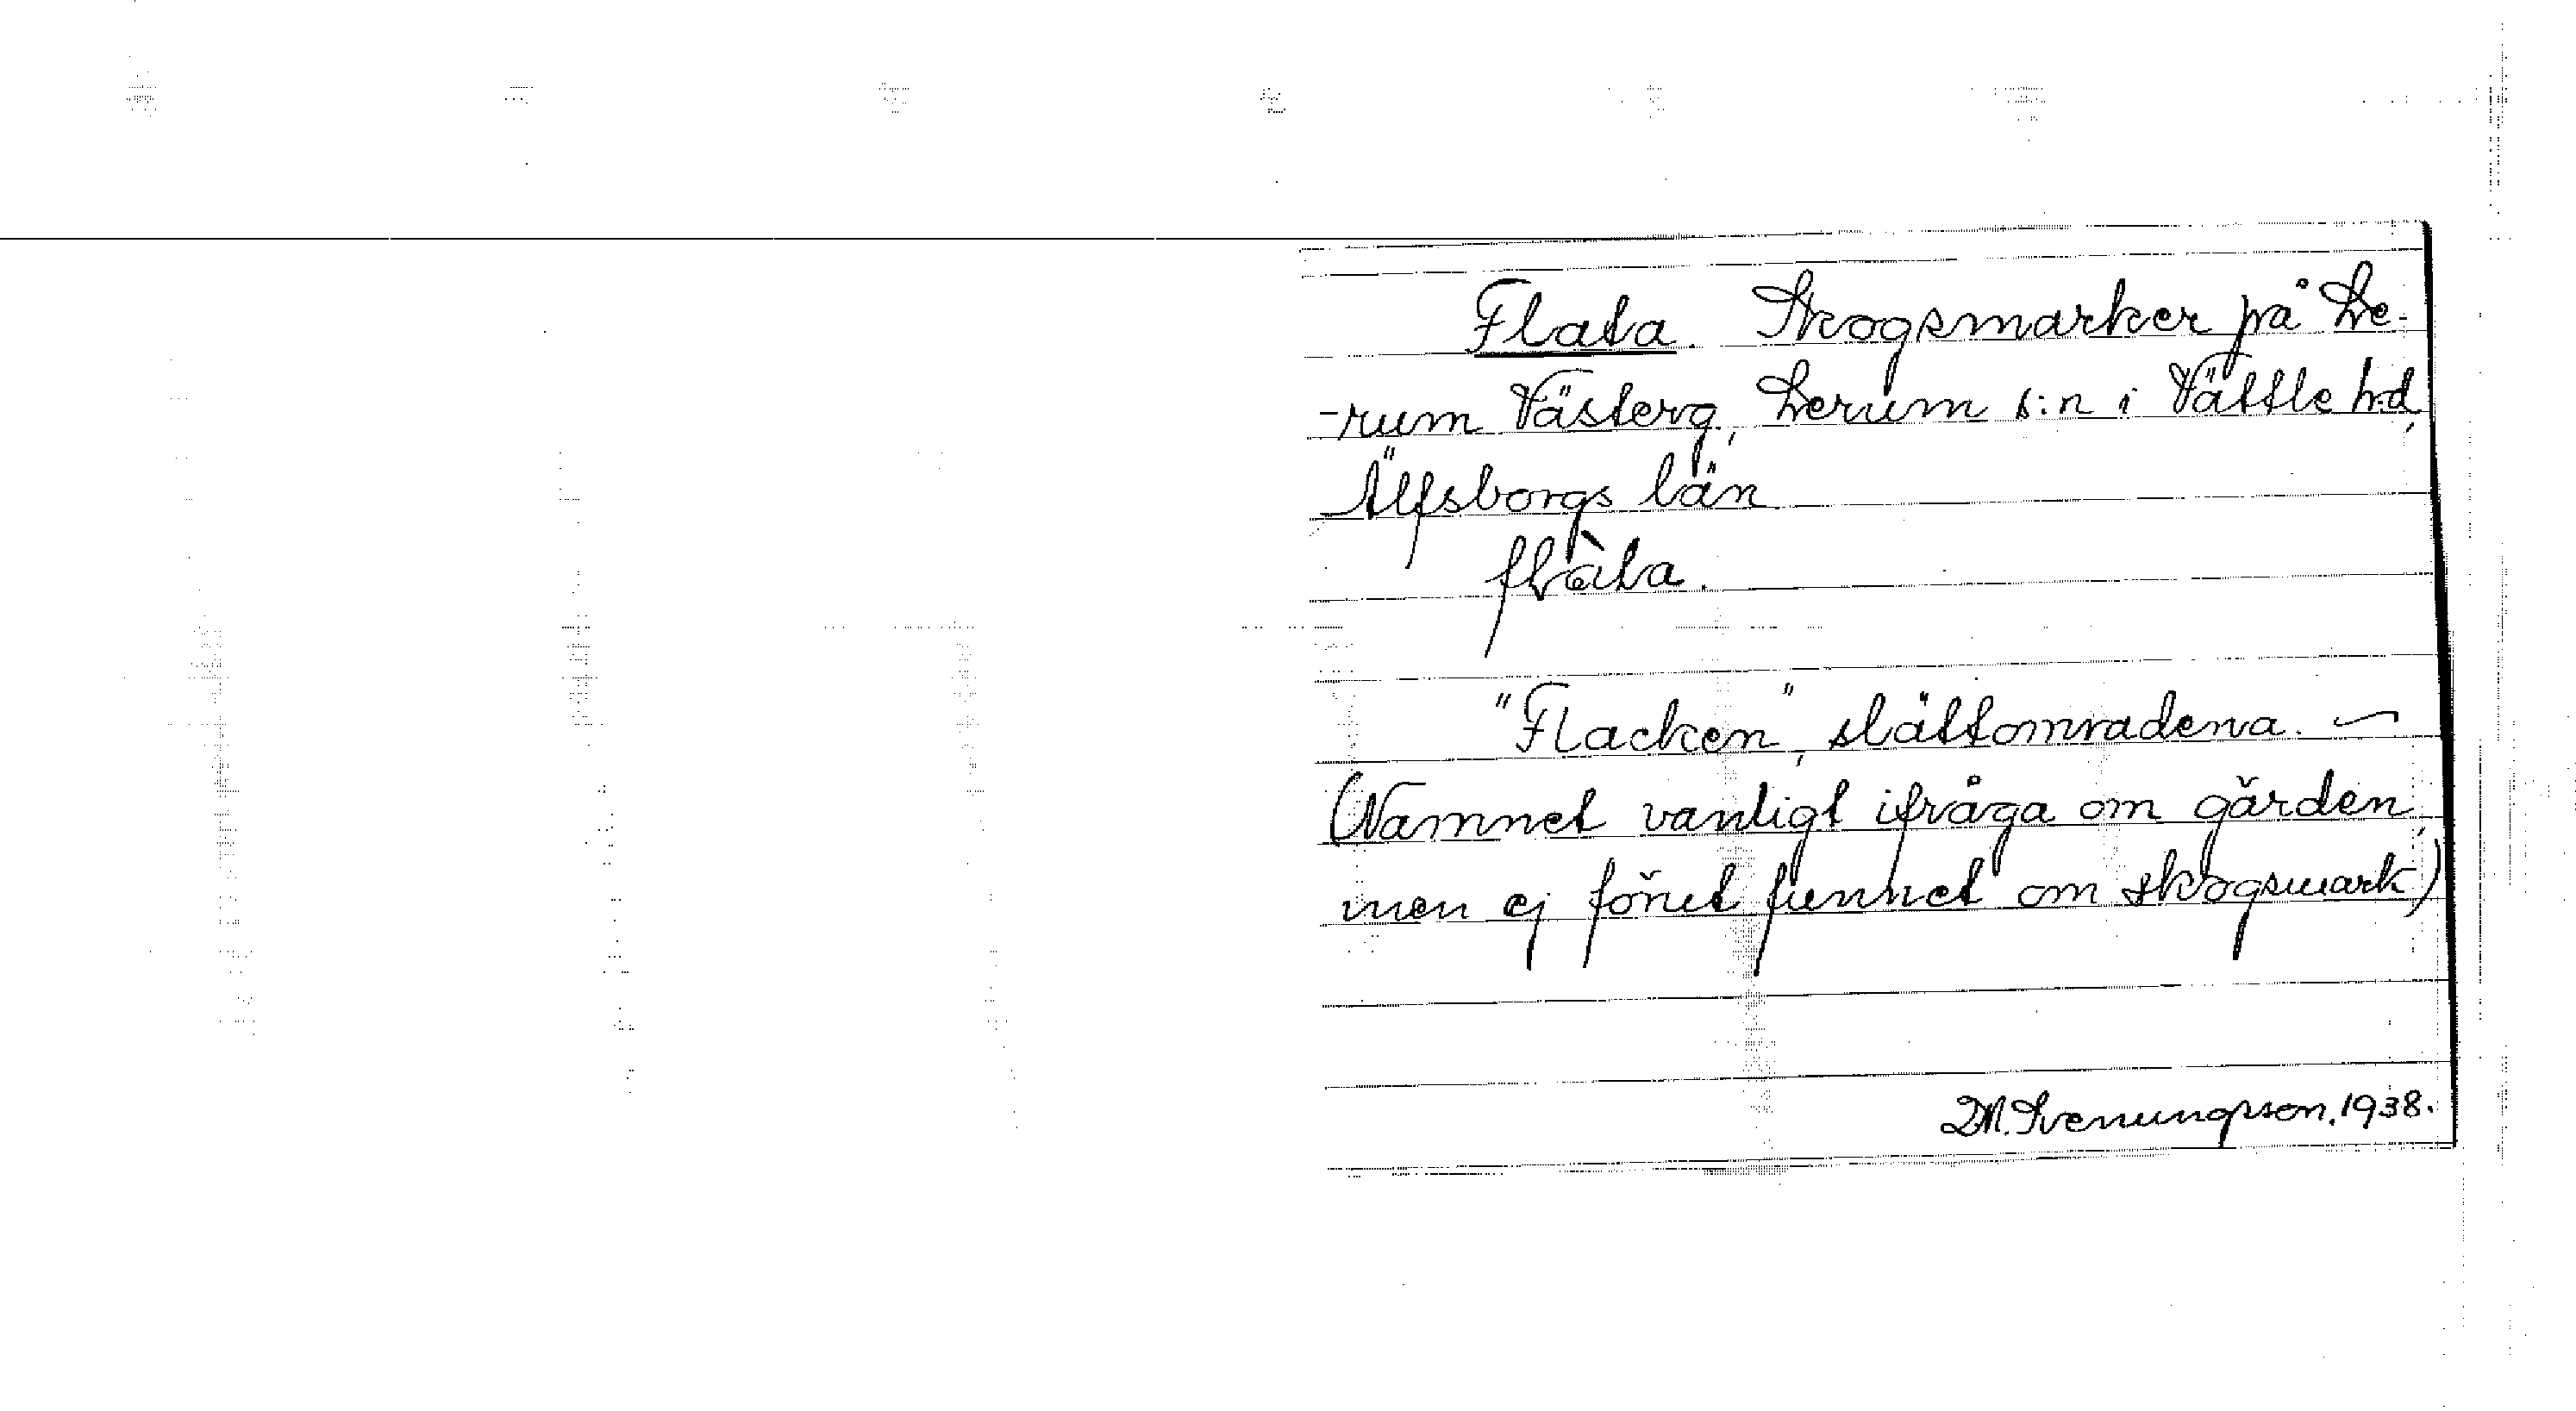 Flata. Skogsmarker på Le-
-rum Västerg, Lerum s:n i Vättle hd,
Älfsborgs län
flàta.
"Flacken", slättomradena. —
(Namnet vanligt ifråga om gärden,
men ej förut funnet om skogsmark)
D.M. Svenungsson. 1938.